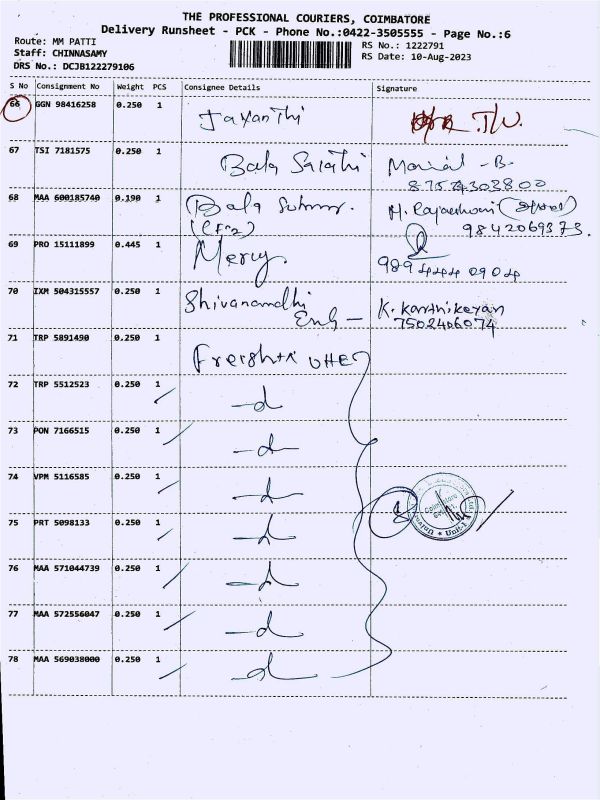 THE PROFESSIONAL COURIERS, COIMBATORE
Delivery Runsheet - PCK - Phone No.:0422-3505555 - Page No.:6
Route: MM PATTI
Staff: CHINNASAMY
DRS No.: DCJB122279106
RS No.: 1222791
RS Date: 10-Aug-2023
S No Consignment No Weight PCS Consignee Details Signature
66 GGN 98416258 0.250 1 Jayanthi
67 TSI 7181575 0.250 1 Bala Sarathi
8754303800
68 MAA 600185740 0.190 1 Bala
9842069373.
69 PRO 15111899 0.445 1 Mercy.
989 444 0904
70 IXM 504315557 0.250 1 Shivanandhi K. Karthikeyan
Eng - 7502406074
71 TRP 5891490 0.250 1
72 TRP 5512523 0.250 1 -d-
73 PON 7166515 0.250 1 -d-
74 VPM 5116585 0.250 1 -d-
75 PRT 5098133 0.250 1 -d-
76 MAA 571044739 0.250 1 -d-
77 MAA 572556047 0.250 1 -d-
78 MAA 569038000 0.250 1 -d-